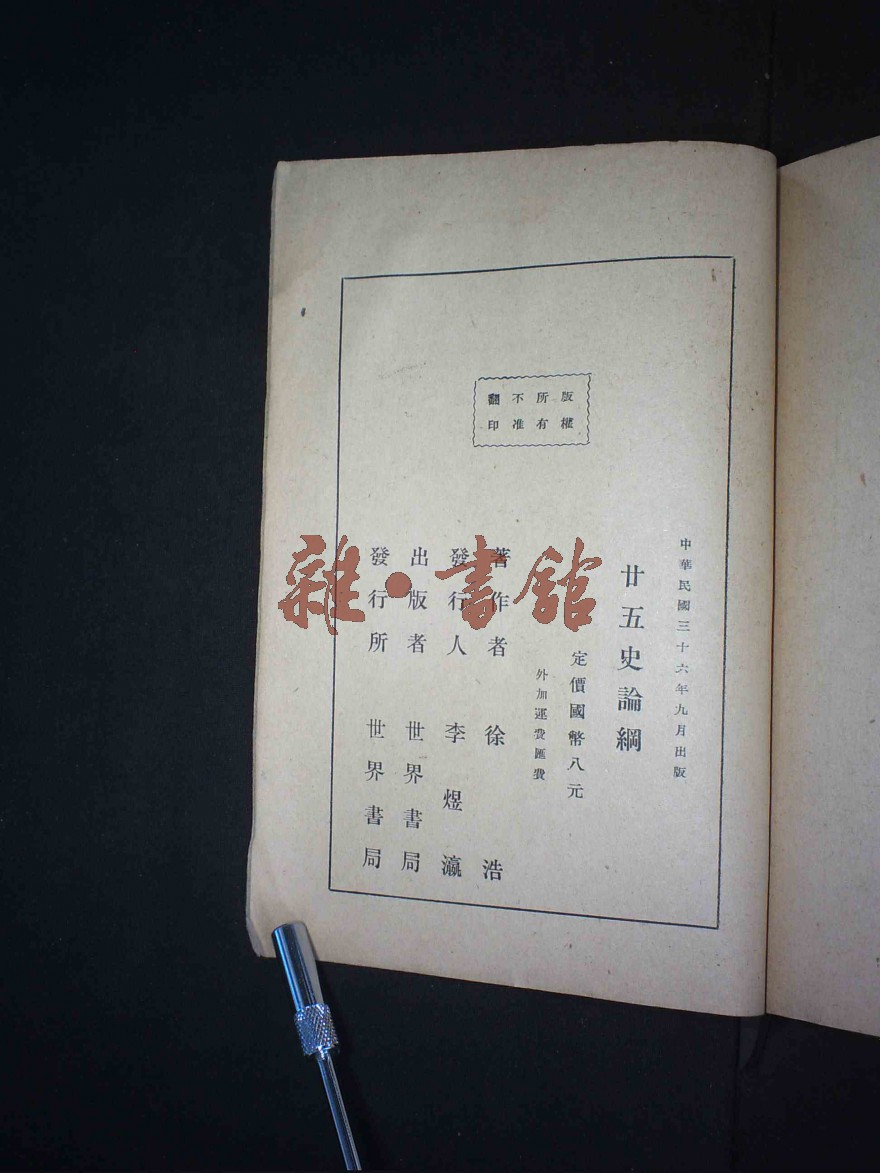 中華民國三十六年九月出版
廿五史論綱
定價國幣八元
外加運費匯費
著作者 徐浩
發行人 李煜瀛
出版者 世界書局
發行所 世界書局
版權
所有
不准
翻印
雜·書館